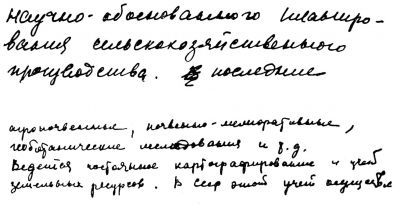 научно-обоснованного планиро-
вания сельскохозяйственного
производства. последние
агропочвенные, почвенно-мелиоративные,
геоботанические исследования и т.д.
Ведется постоянное картографирование и учет
земельных ресурсов. В СССР этот учет осуществл